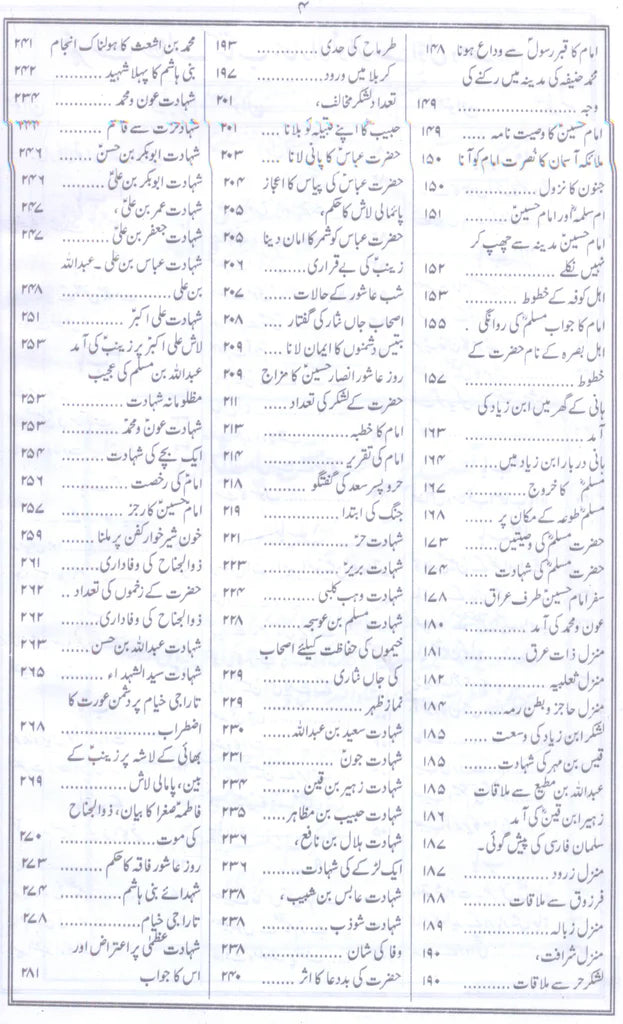 ۴
امام کا قبر رسولؐ سے وداع ہونا ۱۴۸
محمد حنیفہ کی مدینہ میں رکنے کی
وجہ .................. ۱۴۹
امام حسینؑ کا وصیت نامہ ..... ۱۴۹
ملائکہ آسمان کا نصرت امام کو آنا ۱۵۰
جنوں کا نزول ........... ۱۵۰
ام سلمہؓ اور امام حسینؑ ........ ۱۵۱
امام حسینؑ مدینہ سے چھپ کر
نہیں نکلے ............. ۱۵۲
اہل کوفہ کے خطوط ........ ۱۵۳
امام کا جواب مسلمؑ کی روانگی . ۱۵۵
اہل بصرہ کے نام حضرت کے
خطوط ................ ۱۵۷
ہانی کے گھر میں ابن زیاد کی
آمد .................. ۱۶۳
ہانی دربار ابن زیاد میں ..... ۱۶۴
مسلمؑ کا خروج ........ ۱۶۷
مسلمؑ طوعہ کے مکان پر ..... ۱۶۸
حضرت مسلمؑ کی وصیتیں ..... ۱۷۳
حضرت مسلمؑ کی شہادت ...... ۱۷۴
سفر امام حسینؑ طرف عراق ... ۱۷۸
عون و محمد کی آمد .......... ۱۸۰
منزل ذات عرق ......... ۱۸۱
منزل ثعلبیہ ............ ۱۸۲
منزل حاجز و بطن رمہ ....... ۱۸۴
لشکر ابن زیاد کی وسعت ..... ۱۸۵
قیس بن مہر کی شہادت ...... ۱۸۵
عبداللہ بن مطیع سے ملاقات ۱۸۵
زہیر ابن قینؑ کی آمد ۱۸۶
سلمان فارسی کی پیش گوئی۔ ۱۸۷
منزل زرود ............. ۱۸۷
فرزوق سے ملاقات ....... ۱۸۸
منزل زبالہ ............ ۱۸۹
منزل شرافت، ۱۹۰
لشکر حر سے ملاقات ........ ۱۹۰
طرماح کی حدی .......... ۱۹۳
کربلا میں ورود ............ ۱۹۷
تعداد لشکر مخالف، ۲۰۱
حبیب کا اپنے قبیلہ کو بلانا .... ۲۰۱
حضرت عباسؑ کا پانی لانا .... ۲۰۳
حضرت عباسؑ کی پیاس کا اعجاز ۲۰۴
پائمالی لاش کا حکم، ۲۰۵
حضرت عباسؑ کو شمر کا امان دینا ۲۰۵
زینبؑ کی بے قراری ........ ۲۰۶
شب عاشور کے حالات ...... ۲۰۷
اصحاب جاں نثار کی گفتار .... ۲۰۸
بتیس دشمنوں کا ایمان لانا .... ۲۰۹
روز عاشور انصار حسینؑ کا مزاج ۲۰۹
حضرت کے لشکر کی تعداد ..... ۲۱۱
امام کا خطبہ ............. ۲۱۳
امام کی تقریر ............. ۲۱۴
حر و پسر سعد کی گفتگو ....... ۲۱۸
جنگ کی ابتدا ........... ۲۱۹
شہادت حرؑ ............. ۲۲۱
شہادت بریرؑ ............ ۲۲۳
شہادت وہب کلبی ........ ۲۲۴
شہادت مسلم بن عوسجہ ...... ۲۲۸
خیموں کی حفاظت کیلئے اصحاب
کی جاں نثاری ............ ۲۲۹
نماز ظہر ................ ۲۲۹
شہادت سعید بن عبداللہ ۲۳۰
شہادت جونؑ ............ ۲۳۱
شہادت زہیر بن قین ....... ۲۳۴
شہادت حبیب بن مظاہر ..... ۲۳۵
شہادت ہلال بن نافع، ۲۳۶
ایک لڑکے کی شہادت ....... ۲۳۶
شہادت عابس بن شبیب، ۲۳۸
شہادت شوذب .......... ۲۳۸
وفا کی شان ............. ۲۳۸
حضرت کی بددعا کا اثر ....... ۲۴۰
محمد بن اشعث کا ہولناک انجام ۲۴۱
بنی ہاشم کا پہلا شہید ........ ۲۴۲
شہادت عون و محمد ........ ۲۳۴
شہادت قاسم ..........
شہادت ابوبکر بن حسنؑ ..... ۲۴۶
شہادت ابوبکر بن علیؑ ...... ۲۴۶
شہادت عمر بن علیؑ، ۲۴۷
شہادت جعفر بن علیؑ ....... ۲۴۷
شہادت عباس بن علی۔ عبداللہ
بن علی ................ ۲۴۸
شہادت علی اکبرؑ .......... ۲۵۱
لاش علی اکبرؑ پر زینبؑ کی آمد ۲۵۳
عبداللہ بن مسلم کی عجیب
مظلومانہ شہادت .......... ۲۵۳
شہادت عونؑ و محمدؑ ......... ۲۵۳
ایک بچے کی شہادت ....... ۲۵۴
امامؑ کی رخصت .......... ۲۵۶
امام حسینؑ کا رجز ......... ۲۵۷
خون شیر خوار کفن پر ملنا ..... ۲۵۹
ذوالجناح کی وفاداری ....... ۲۶۱
حضرت کے زخموں کی تعداد .. ۲۶۲
ذوالجناح کی وفاداری ....... ۲۶۲
شہادت عبداللہ بن حسن ..... ۲۶۳
شہادت سید الشہداء ........ ۲۶۵
تاراجی خیام پر دشمن عورت کا
اضطراب .............. ۲۶۸
بھائی کے لاشہ پر زینبؑ کے
بین، پامالی لاش .......... ۲۶۹
فاطمہ صغراؑ کا بیان، ذوالجناح
کی موت ............... ۲۷۰
روز عاشور فاقہ کا حکم ....... ۲۷۳
شہدائے بنی ہاشم ......... ۲۷۴
تاراجی خیام ............. ۲۷۸
شہادت عظمٰی پر اعتراض اور
اس کا جواب ۲۸۱